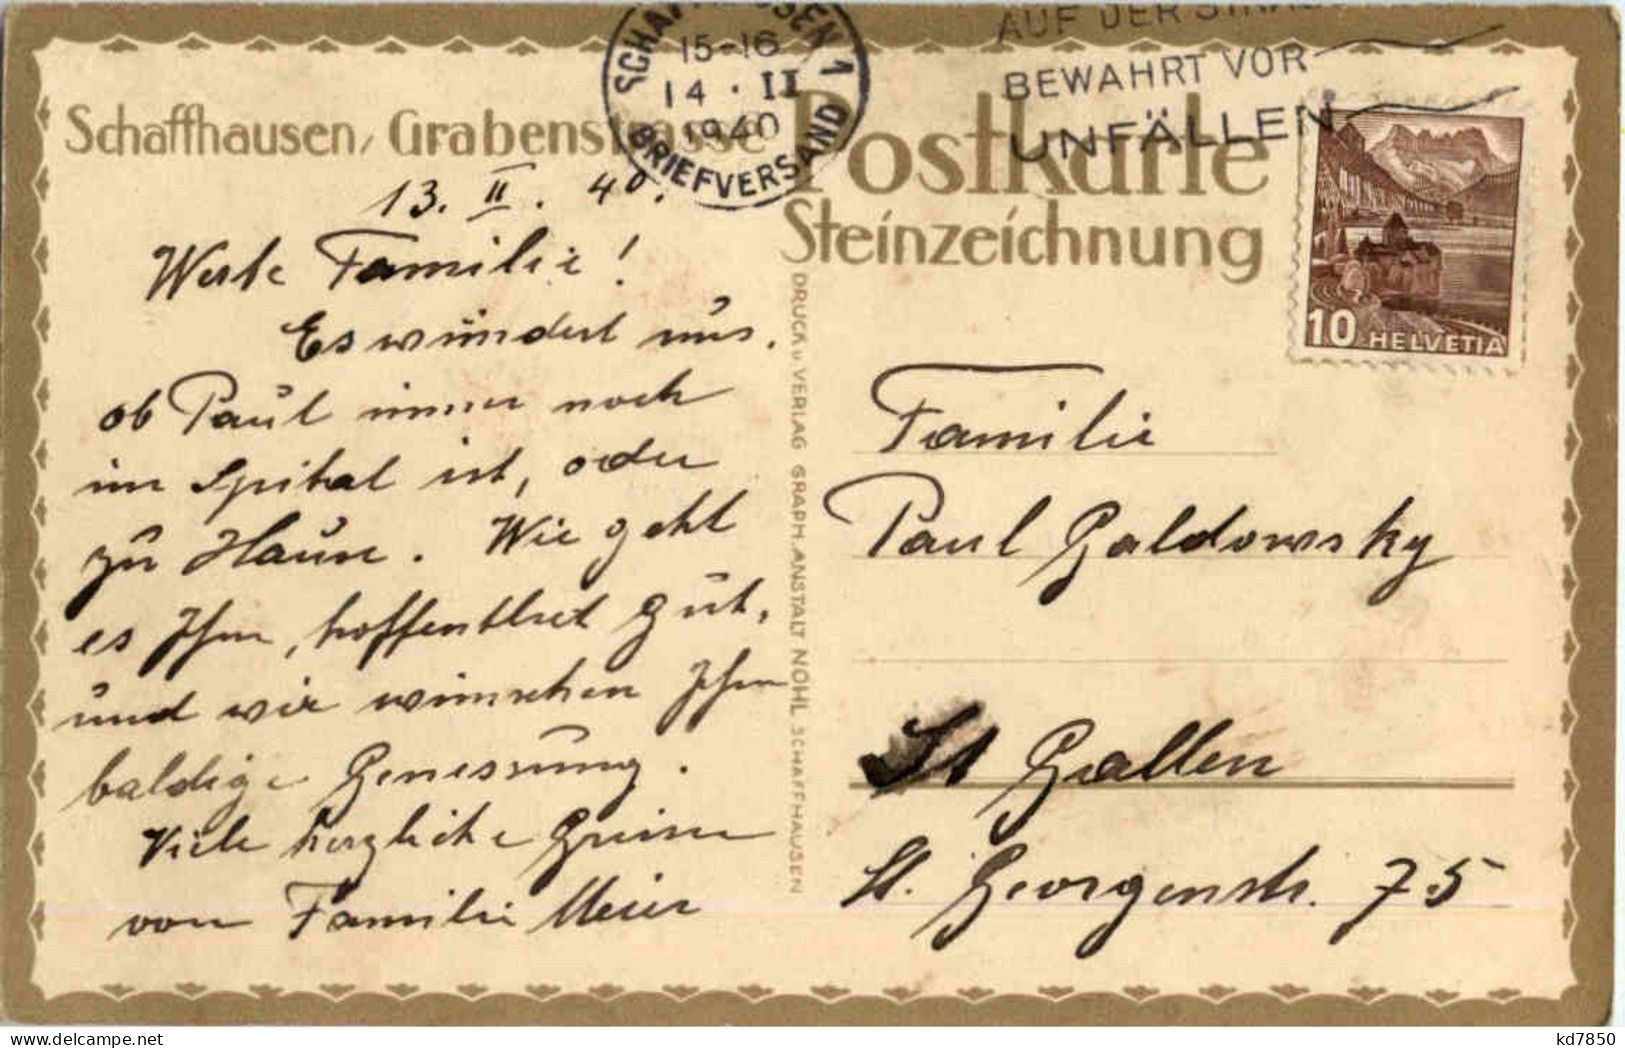 SCHAFFHAUSEN 1
15-16
14.II
1940
BRIEFVERSAND
AUF DER
BEWAHRT VOR
UNFÄLLEN
Schaffhausen, Grabenstrasse
Postkarte
Steinzeichnung
10 HELVETIA
13. II. 40.
Werte Familie!
Es wundert uns,
ob Paul immer noch
im Spital ist, oder
zu Hause. Wie geht
es Ihm, hoffentlich gut,
und wir wünschen Ihm
baldige Genesung.
Viele herzliche Grüsse
von Familie Meier
DRUCK u. VERLAG GRAPH. ANSTALT NOHL SCHAFFHAUSEN
Familie
Paul Galdowsky
St Gallen
St. Georgenstr. 75
www.delcampe.net
kd7850